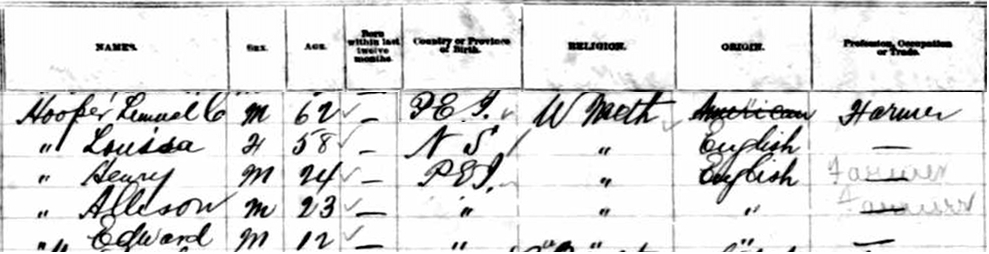 NAMES. SEX. AGE. Born within last twelve months. Country or Province of Birth. RELIGION. ORIGIN. Profession, Occupation or Trade.
Hooper Lemuel C M 62 — P.E.I. W Meth American Farmer
" Louisa F 58 — N S " English —
" Henry M 24 — P.E.I. " English — Farmer
" Allison M 23 — " " " — Farmer
" Edward M 12 — " " " —